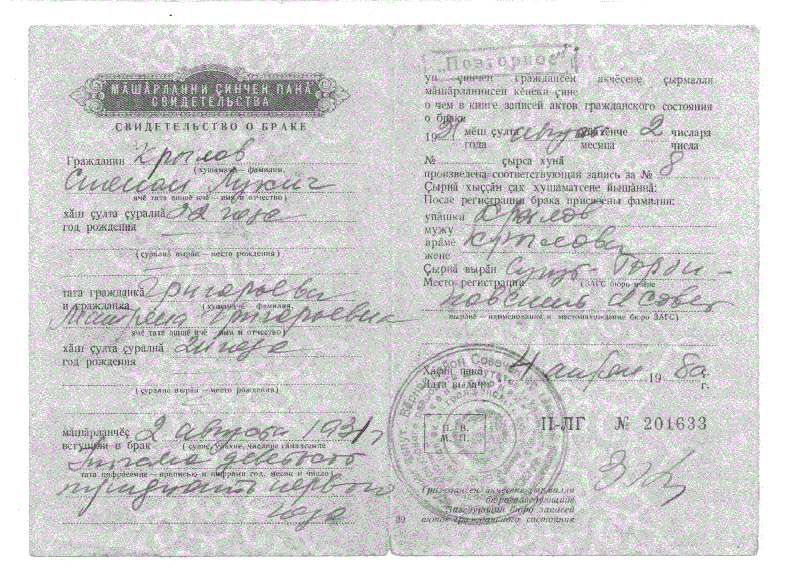 МАШӐРЛАННИ ҪИНЧЕН ПАНӐ
СВИДЕТЕЛЬСТВА
СВИДЕТЕЛЬСТВО О БРАКЕ
Гражданин Крылов
(хушамачӗ — фамилия,
Симеон Лукич
ячӗ тата ашшӗ ячӗ — имя и отчество)
хӑш ҫулта ҫуралнӑ 22 года
год рождения
(ҫуралнӑ вырӑн — место рождения)
тата гражданка Григорьева
и гражданка (хушамачӗ — фамилия,
Григорьевна
ячӗ тата ашшӗ ячӗ — имя и отчество)
хӑш ҫулта ҫуралнӑ года
год рождения
(ҫуралнӑ вырӑн — место рождения)
мӑшӑрланнӑ 2 августа 1931 г
вступили в брак
девятьсот
тата цифрӑсемпе — прописью и цифрами год, месяц и число)
тридцать первого
года
„Повторное"
ун ҫинчен граждансен акчӗсене ҫырмалли
мӑшӑрланнисен кӗнеки ҫине
о чем в книге записей актов гражданского состояния
о браке
19 31 мӗш ҫулта август уйӑхӗнче 2 числара
года месяца числа
№ ҫырса хунӑ
произведена соответствующая запись за № 8
Ҫырнӑ хыҫҫӑн ҫак хушаматсене йышӑннӑ:
После регистрации брака присвоены фамилии:
упӑшки Крылов
мужу
арӑмӗ Крылова
жене
Ҫырнӑ вырӑн
Место регистрации (ЗАГС бюро ячӗпе
вырӑнӗ — наименование и местонахождение бюро ЗАГС)
Хӑҫан панӑ 4 апреля 19 80 ҫ.
Дата выдачи г.
П. В.
М. П.
II-ЛГ № 201633
Граждансен акчӗсене ҫырмалли
бюро заведующийӗ
Заведующий бюро записей
актов гражданского состояния